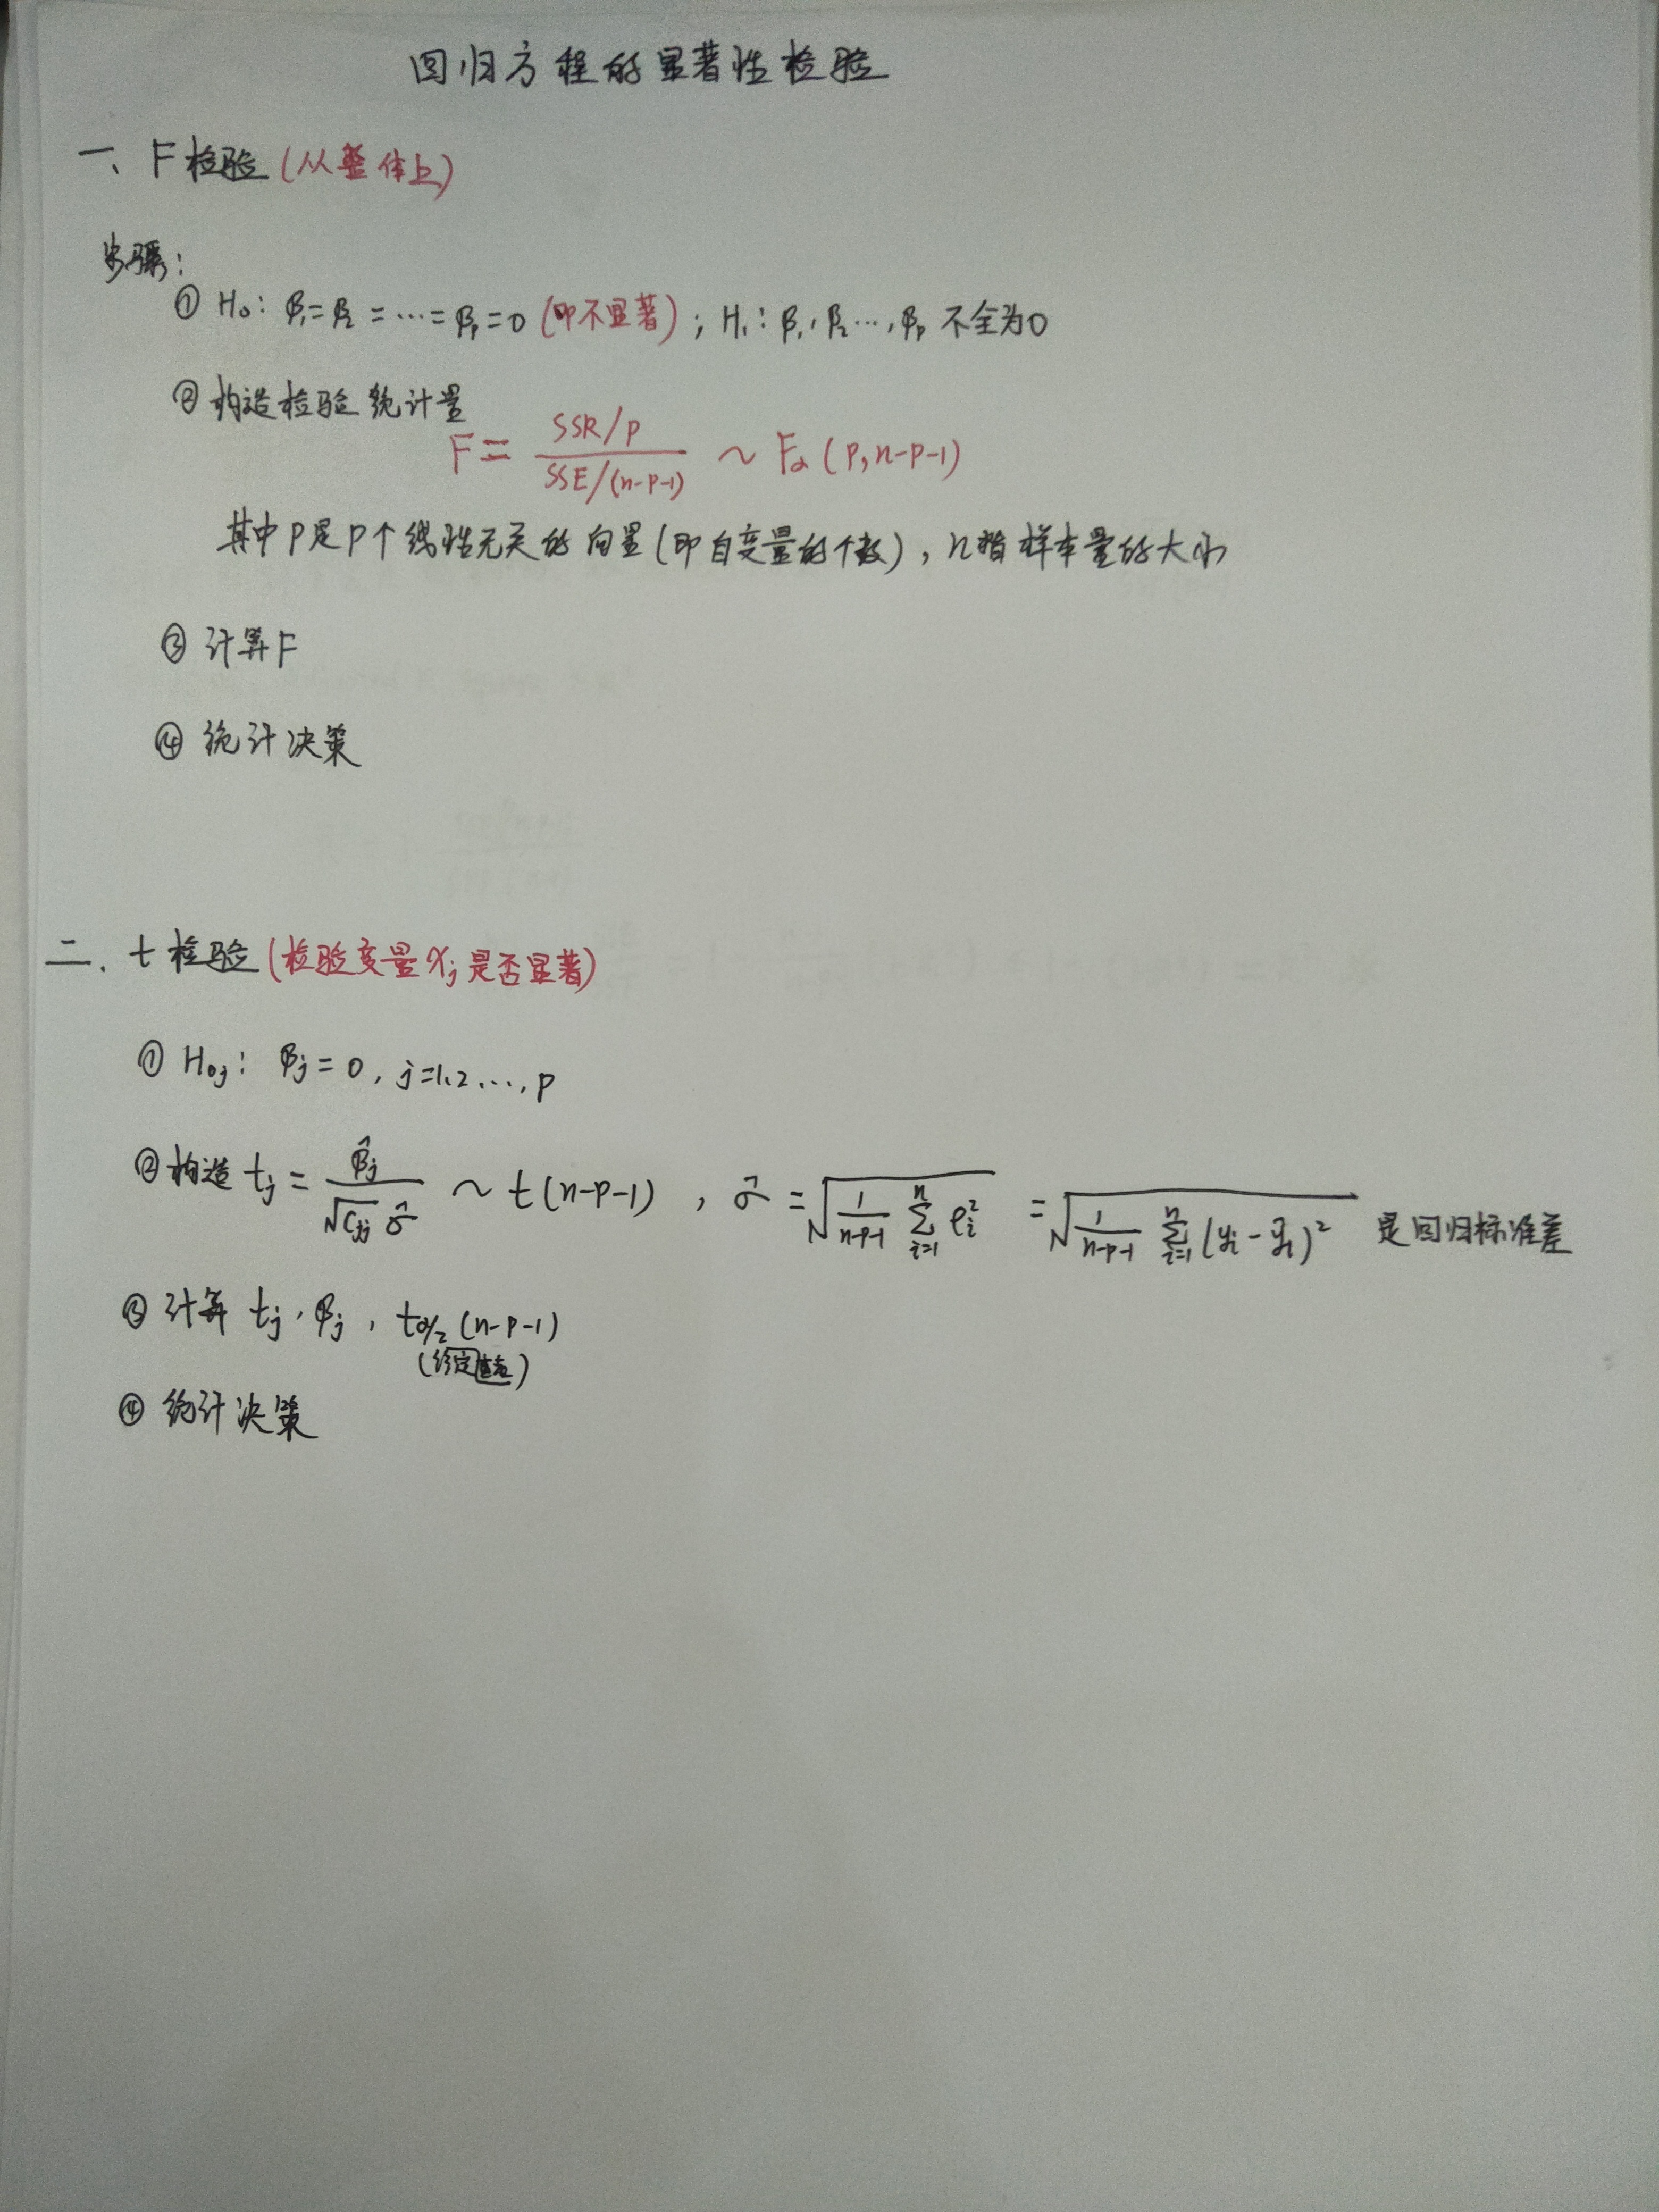 回归方程的显著性检验
一、F检验(从整体上)
步骤:
① H₀: β₁=β₂=…=βₚ=0 (即不显著); H₁: β₁,β₂…,βₚ 不全为0
② 构造检验统计量
F = (SSR/p) / (SSE/(n-p-1)) ~ Fα(p,n-p-1)
其中p是p个线性无关的向量(即自变量的个数), n指样本量的大小
③ 计算F
④ 统计决策
二、t检验(检验变量xⱼ是否显著)
① H₀ⱼ: βⱼ=0, j=1,2…,p
② 构造 tⱼ = β̂ⱼ / (√cⱼⱼ σ̂) ~ t(n-p-1), σ̂ = √(1/(n-p-1) Σᵢ₌₁ⁿ eᵢ²) = √(1/(n-p-1) Σᵢ₌₁ⁿ (yᵢ-ŷᵢ)²) 是回归标准差
③ 计算 tⱼ, βⱼ, t_{α/2}(n-p-1)
(给定
④ 统计决策